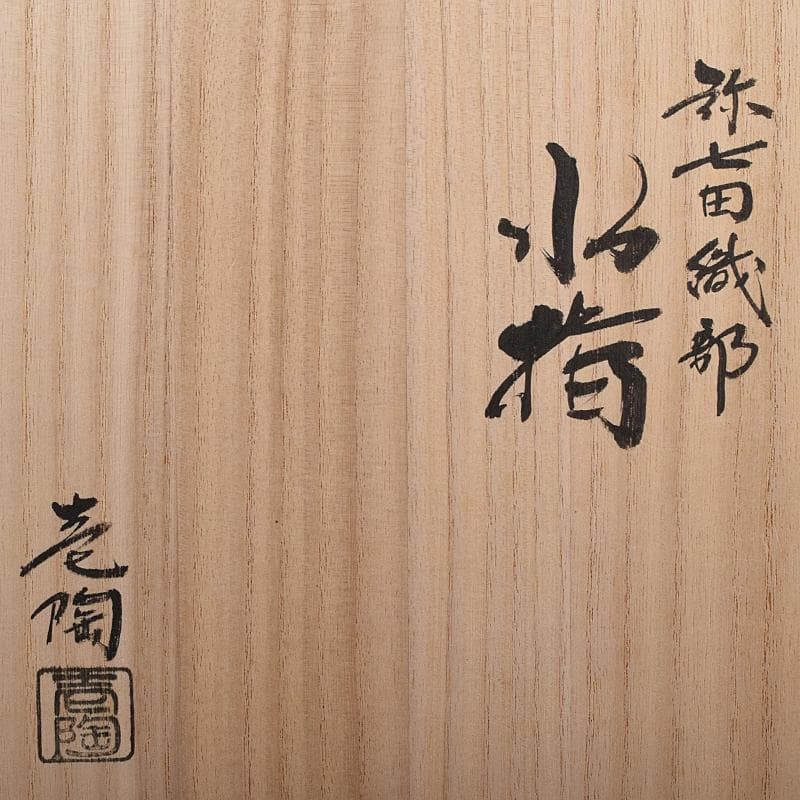 弥七田織部
水指
壱陶
壱陶